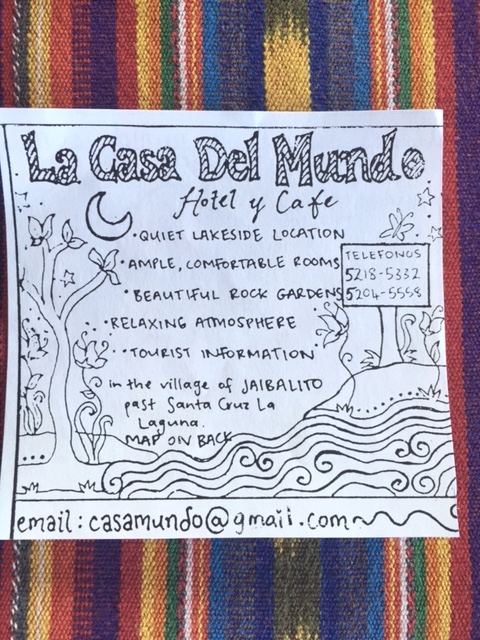 La Casa Del Mundo
Hotel y Cafe
• QUIET LAKESIDE LOCATION
• AMPLE, COMFORTABLE ROOMS
• BEAUTIFUL ROCK GARDENS
• RELAXING ATMOSPHERE
• TOURIST INFORMATION
TELEFONOS
5218-5332
5204-5558
in the village of JAIBALITO
past Santa Cruz La
Laguna.
MAP ON BACK
email: casamundo@gmail.com